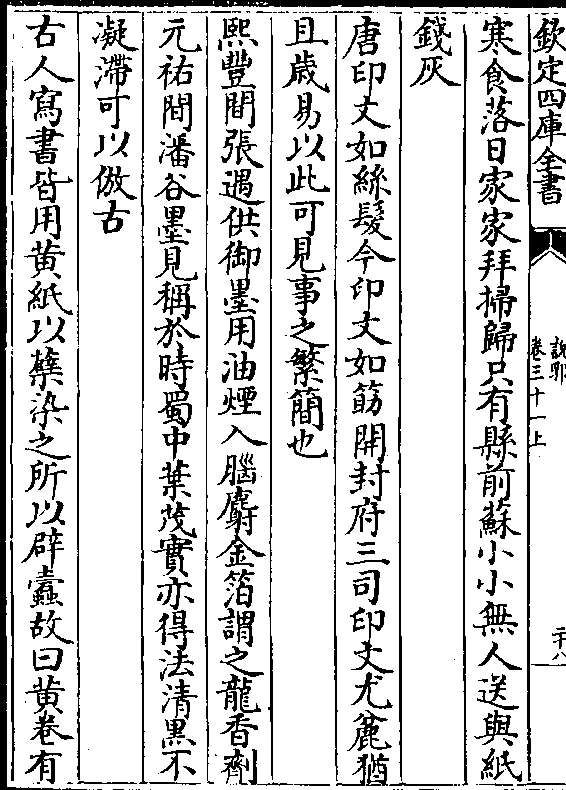 欽定四庫全書
說郛
卷三十一上
二十八
寒食落日家家拜掃歸只有縣前蘇小小無人送與紙
錢灰
唐印文如絲髮今印文如筯開封府三司印文尤麄猶
且歲易以此可見事之繁簡也
熙豐間張遇供御墨用油煙入腦麝金箔謂之龍香劑
元祐間潘谷墨見稱於時蜀中葉茂實亦得法清黑不
凝滯可以倣古
古人寫書皆用黄紙以蘖染之所以辟蠧故曰黄卷有